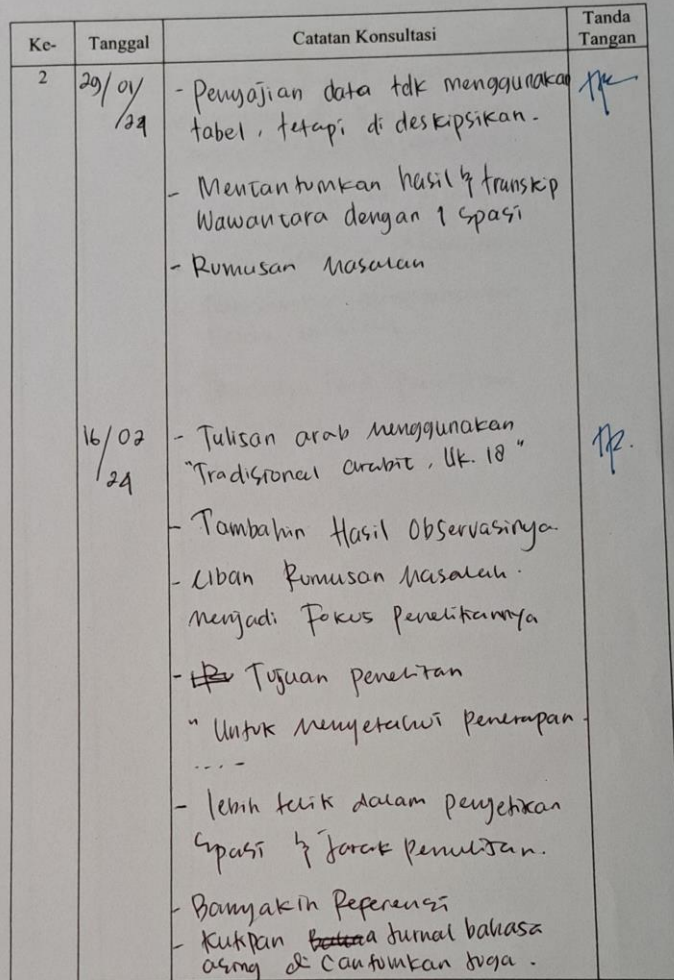 Ke- Tanggal Catatan Konsultasi Tanda Tangan
2 29/01/24
- Penyajian data tdk menggunakan
tabel, tetapi di deskipsikan.
- Mencantumkan hasil & transkip
Wawancara dengan 1 spasi
- Rumusan Masalah
16/02/24
- Tulisan arab menggunakan
"Tradisional arabic, Uk. 18"
- Tambahin Hasil Observasinya.
- Ubah Rumusan Masalah.
menjadi Fokus Penelitiannya
- Tujuan penelitian
" Untuk Mengetahui penerapan
....-
- lebih telik dalam pengetikan
spasi & Jarak Penulisan.
- Banyakin Referensi
- Kutipan Jurnal bahasa
asing di Cantumkan Juga.